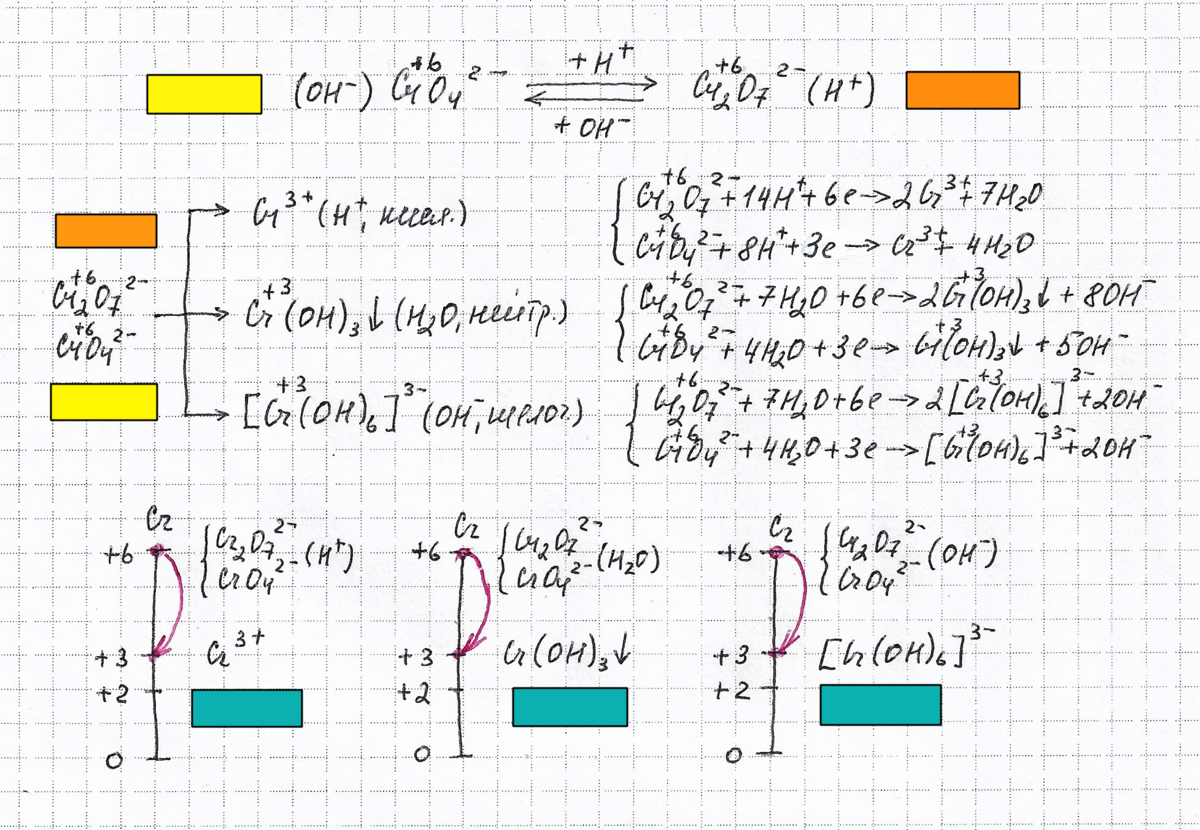 (OH⁻) CrO₄²⁻ (+6) ⇌ (+H⁺ / +OH⁻) Cr₂O₇²⁻ (+6) (H⁺)
Cr³⁺ (H⁺, кисл.)
Cr₂O₇²⁻ (+6)
CrO₄²⁻ (+6)
Cr(OH)₃↓ (+3) (H₂O, нейтр.)
[Cr(OH)₆]³⁻ (+3) (OH⁻, щелоч.)
Cr₂O₇²⁻ (+6) + 14H⁺ + 6e → 2Cr³⁺ + 7H₂O
CrO₄²⁻ (+6) + 8H⁺ + 3e → Cr³⁺ + 4H₂O
Cr₂O₇²⁻ (+6) + 7H₂O + 6e → 2Cr(OH)₃↓ (+3) + 8OH⁻
CrO₄²⁻ (+6) + 4H₂O + 3e → Cr(OH)₃↓ (+3) + 5OH⁻
Cr₂O₇²⁻ (+6) + 7H₂O + 6e → 2[Cr(OH)₆]³⁻ (+3) + 2OH⁻
CrO₄²⁻ (+6) + 4H₂O + 3e → [Cr(OH)₆]³⁻ (+3) + 2OH⁻
Cr
+6 { Cr₂O₇²⁻
CrO₄²⁻ (H⁺)
+3 Cr³⁺
+2
0
Cr
+6 { Cr₂O₇²⁻
CrO₄²⁻ (H₂O)
+3 Cr(OH)₃↓
+2
0
Cr
+6 { Cr₂O₇²⁻
CrO₄²⁻ (OH⁻)
+3 [Cr(OH)₆]³⁻
+2
0